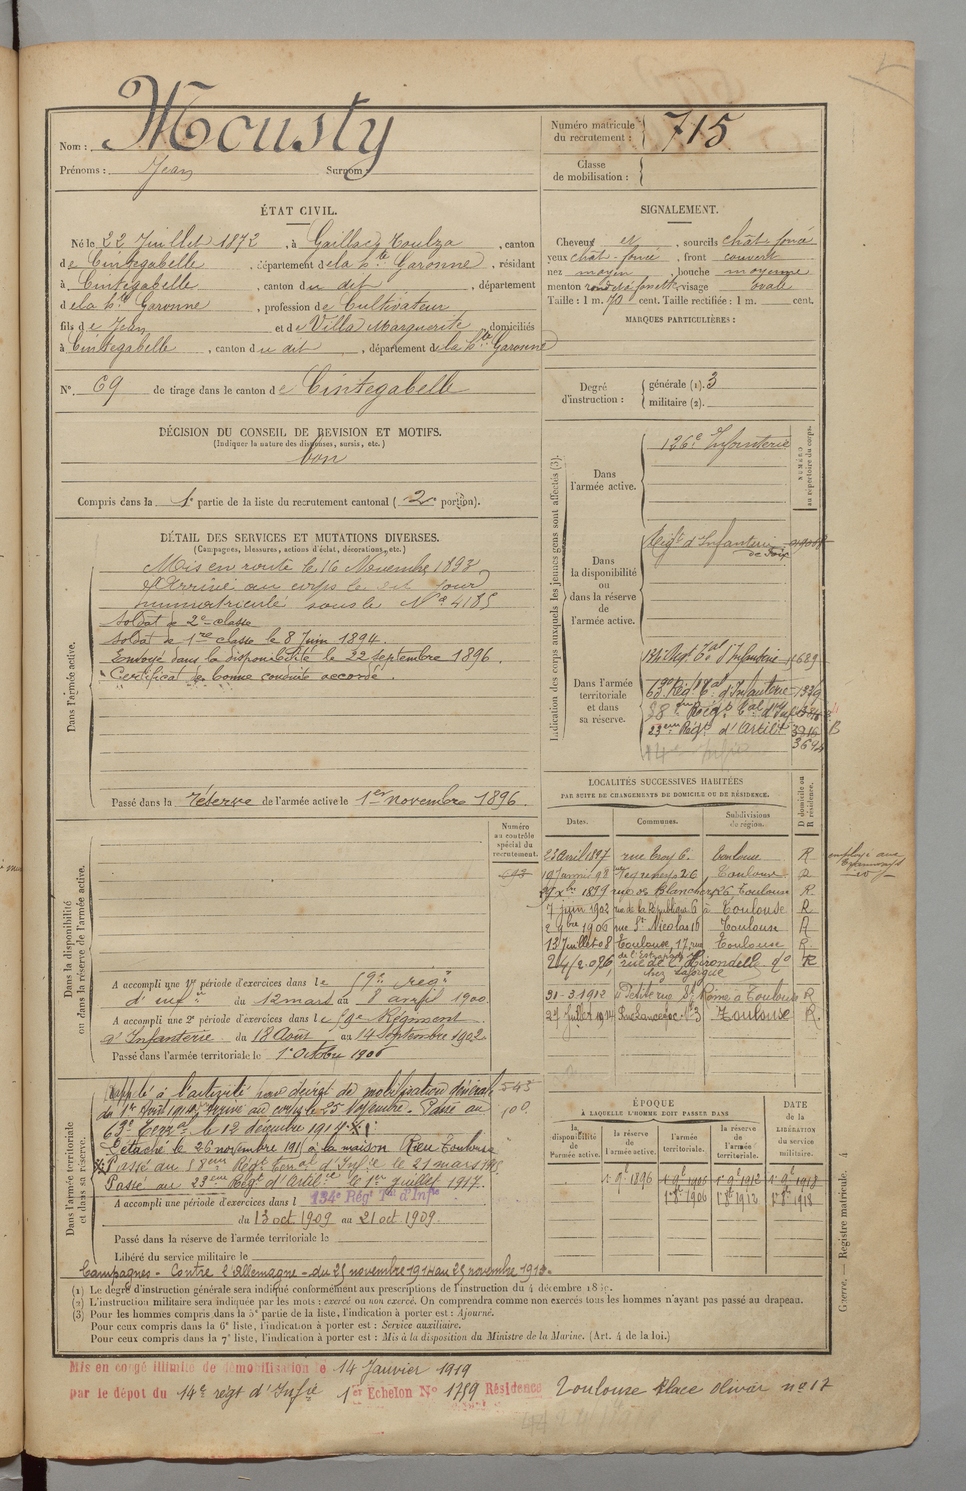 Nom : Mousty
Prénoms : Jean Surnom :
Numéro matricule du recrutement : 715
Classe de mobilisation :
ÉTAT CIVIL.
Né le 22 Juillet 1872, à Gaillac Toulza, canton
de Cintegabelle, département de la Hte Garonne, résidant
à Cintegabelle, canton du dit, département
de la Hte Garonne, profession de Cultivateur
fils de Jean et de Villa Marguerite domiciliés
à Cintegabelle, canton du dit, département de la Hte Garonne
N° 69 de tirage dans le canton de Cintegabelle
SIGNALEMENT.
Cheveux et sourcils chât. foncé
yeux chât. foncé, front couvert
nez moyen, bouche moyenne
menton rond à fossette visage ovale
Taille : 1 m. 70 cent. Taille rectifiée : 1 m. cent.
MARQUES PARTICULIÈRES :
Degré d'instruction : générale (1). 3
militaire (2).
DÉCISION DU CONSEIL DE REVISION ET MOTIFS.
(Indiquer la nature des dispenses, sursis, etc.)
bon
Compris dans la 1e partie de la liste du recrutement cantonal (2 portion).
DÉTAIL DES SERVICES ET MUTATIONS DIVERSES.
(Campagnes, blessures, actions d'éclat, décorations, etc.)
Dans l'armée active.
Mis en route le 16 Novembre 1893
Arrivé au corps le dit jour
immatriculé sous le No 4185
Soldat de 2e classe
Soldat de 1re classe le 8 Juin 1894.
Envoyé dans la disponibilité le 22 septembre 1896.
Certificat de bonne conduite accordé.
Passé dans la réserve de l'armée active le 1er novembre 1896.
Indication des corps auxquels les jeunes gens sont affectés (3).
NUMÉRO au répertoire du corps.
Dans l'armée active.
126e Infanterie
Dans la disponibilité ou dans la réserve de l'armée active.
Régt d'Infanterie
de Foix
Dans l'armée territoriale et dans sa réserve.
134e Régt Tal d'Infanterie
63e Rég. Tal d'Infanterie
23eme Régt d'Artill
LOCALITÉS SUCCESSIVES HABITÉES
PAR SUITE DE CHANGEMENTS DE DOMICILE OU DE RÉSIDENCE.
Dates. Communes. Subdivisions de région. D domicile ou R résidence.
23 avril 1897 rue Croy 6. Toulouse R
Toulouse R
rue des Blanchers 26 Toulouse R.
7 juin 1902 rue de la République 6 à Toulouse R
2 9bre 1906 rue St Nicolas 16 Toulouse R
13 Juillet 08 Toulouse, 17 rue Toulouse R.
chez Lafforgue
31-3-1912 Toulouse R
Toulouse R.
Dans la disponibilité ou dans la réserve de l'armée active.
Numéro au contrôle spécial du recrutement.
A accompli une 1re période d'exercices dans le 59e rég.
d'infrie du 12 mars au 8 avril 1900.
A accompli une 2e période d'exercices dans le 59e Régiment
d'Infanterie du 18 Août au 14 Septembre 1902.
Passé dans l'armée territoriale le 1er Octobre 1906
Dans l'armée territoriale et dans sa réserve.
Rappelé à l'activité par décret de mobilisation générale
du 1er Août 1914. Arrivé au corps le 25 Novembre. Passé au
63e Terral le 12 décembre 1914
Détaché le 26 novembre 1915 à la maison Toulouse
Passé au 58eme Régt Tal d'Infie le 21 mars
Passé au 23eme Régt d'Artillie le 1er juillet 1917.
A accompli une période d'exercices dans l 134e Régt Tal d'Infie
du 13 oct. 1909 au 21 oct. 1909.
Passé dans la réserve de l'armée territoriale le
Libéré du service militaire le
Campagnes - Contre l'Allemagne - du 25 novembre 1914 au 25 novembre 1915.
ÉPOQUE
À LAQUELLE L'HOMME DOIT PASSER DANS
la disponibilité de l'armée active. la réserve de l'armée active. l'armée territoriale. la réserve de l'armée territoriale.
DATE de la LIBÉRATION du service militaire.
(1) Le degré d'instruction générale sera indiqué conformément aux prescriptions de l'instruction du 4 décembre 1889.
(2) L'instruction militaire sera indiquée par les mots : exercé ou non exercé. On comprendra comme non exercés tous les hommes n'ayant pas passé au drapeau.
(3) Pour les hommes compris dans la 5e partie de la liste, l'indication à porter est : Ajourné.
Pour ceux compris dans la 6e liste, l'indication à porter est : Service auxiliaire.
Pour ceux compris dans la 7e liste, l'indication à porter est : Mis à la disposition du Ministre de la Marine. (Art. 4 de la loi.)
Guerre. — Registre matricule. 4
Mis en congé illimité de démobilisation le 14 Janvier 1919
par le dépot du 14e régt d'Infie 1er Echelon N° 1759 Résidence Toulouse place Olivier no 17